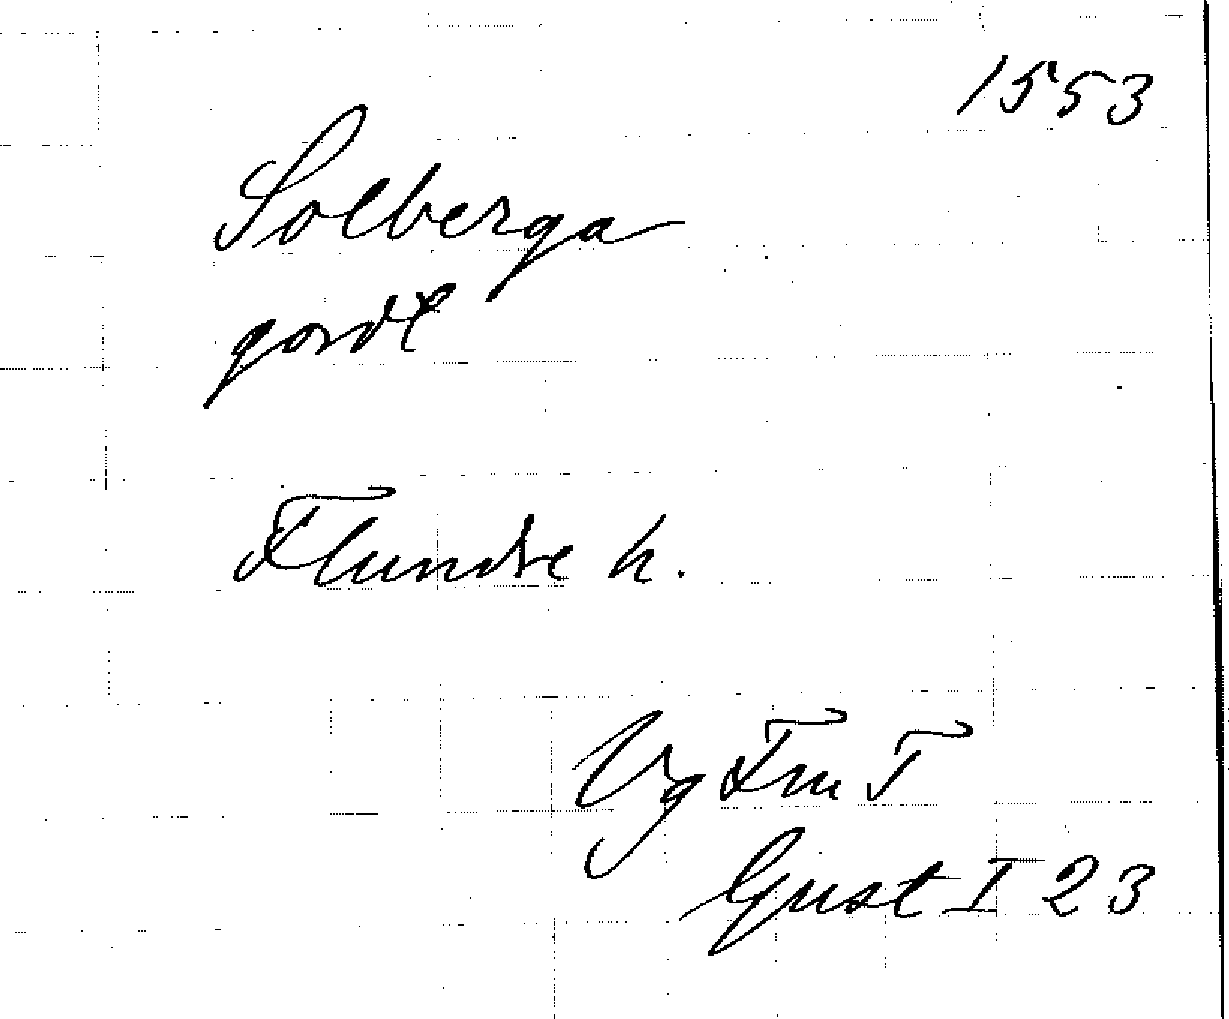 1553
Solberga
gordt
Flundre h.
Vg Fm T
Gust I 23